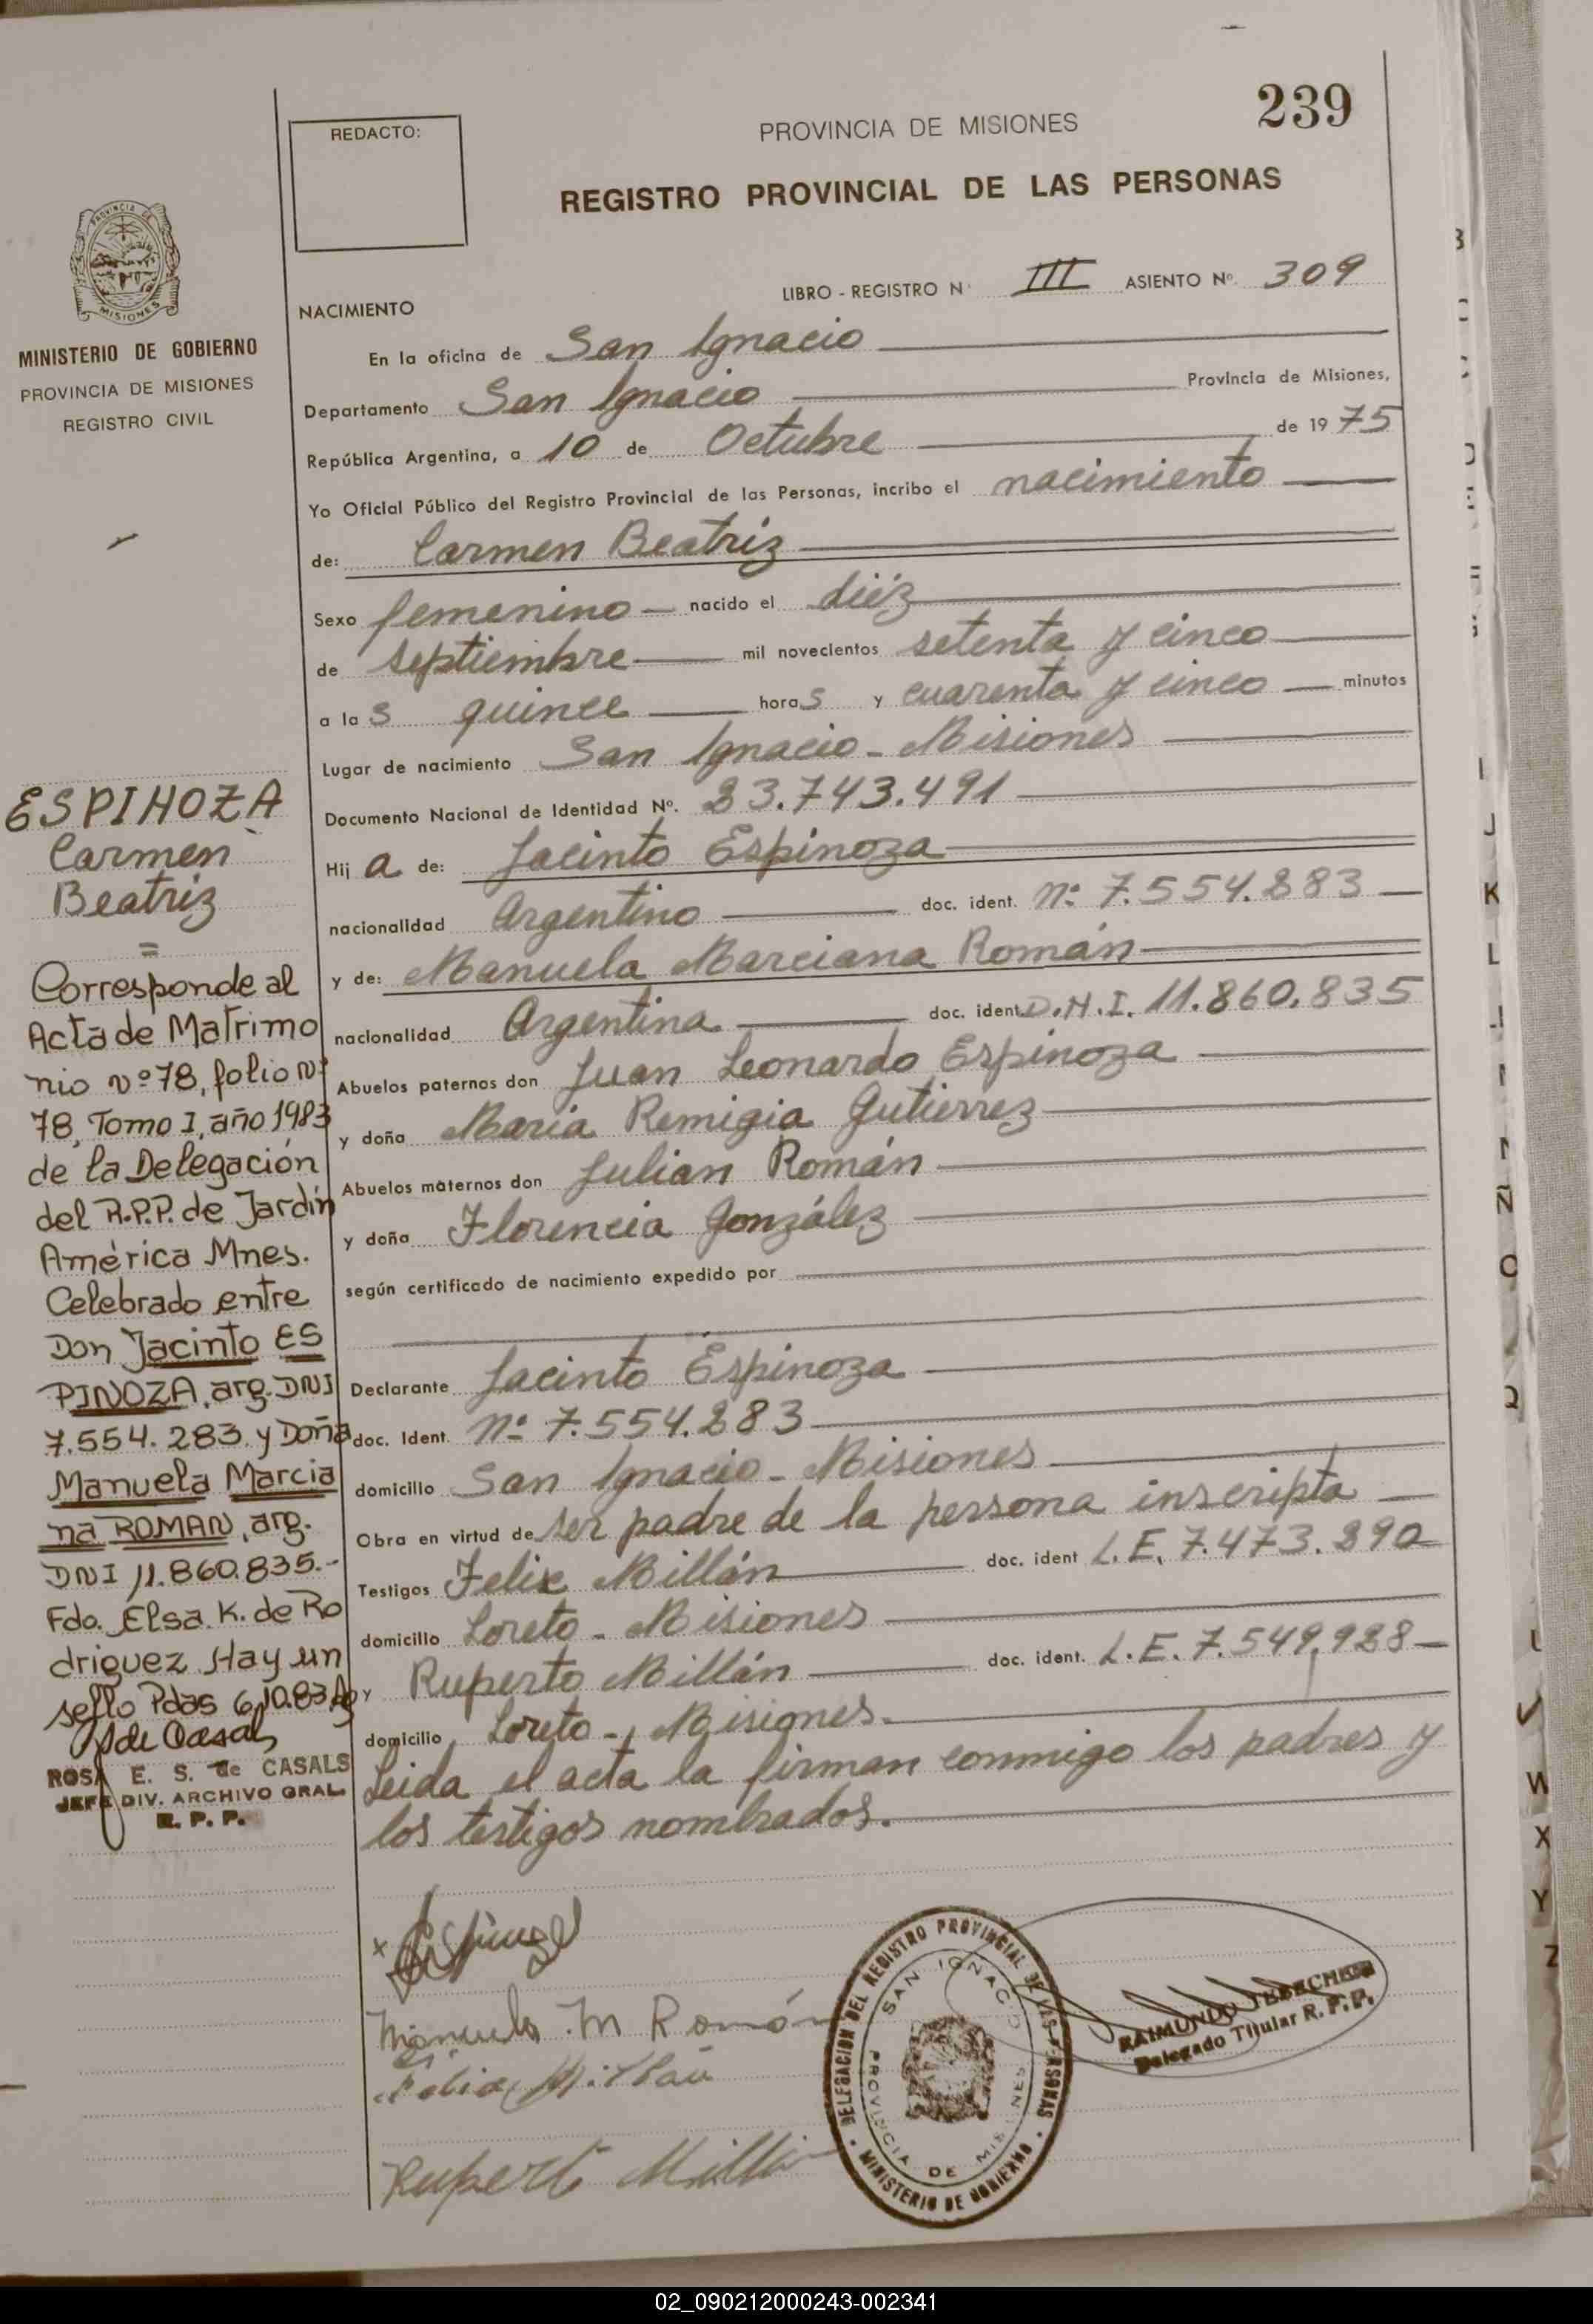 239
REDACTO:
PROVINCIA DE MISIONES
REGISTRO PROVINCIAL DE LAS PERSONAS
PROVINCIA DE
MISIONES
MINISTERIO DE GOBIERNO
PROVINCIA DE MISIONES
REGISTRO CIVIL
LIBRO - REGISTRO N° III ASIENTO Nº. 309
NACIMIENTO
En la oficina de San Ignacio
Departamento San Ignacio Provincia de Misiones,
República Argentina, a 10 de Octubre de 1975
Yo Oficial Público del Registro Provincial de las Personas, incribo el nacimiento
de: Carmen Beatriz
Sexo femenino nacido el diéz
de septiembre mil novecientos setenta y cinco
a las quince horas y cuarenta y cinco minutos
Lugar de nacimiento San Ignacio - Misiones
Documento Nacional de Identidad Nº. 23.743.491
Hija de: Jacinto Espinoza
nacionalidad Argentino doc. ident. nº 7.554.283
y de: Manuela Marciana Román
nacionalidad Argentina doc. ident. D.N.I. 11.860.835
Abuelos paternos don Juan Leonardo Espinoza
y doña Maria Remigia Gutierrez
Abuelos maternos don Julian Román
y doña Florencia González
según certificado de nacimiento expedido por
Declarante Jacinto Espinoza
doc. Ident. nº 7.554.283
domicilio San Ignacio - Misiones
Obra en virtud de ser padre de la persona inscripta
Testigos Felix Millán doc. ident L.E. 7.473.290
domicilio Loreto - Misiones
y Ruperto Millán doc. ident. L.E. 7.549.928
domicilio Loreto - Misiones.
Leida el acta la firman conmigo los padres y
los testigos nombrados.
ESPINOZA
Carmen
Beatriz
=
Corresponde al
Acta de Matrimo
nio nº 78, folio Nº
78, Tomo I, año 1983
de la Delegación
del R.P.P. de Jardín
América Mnes.
Celebrado entre
Don Jacinto ES
PINOZA, arg. DNI
7.554.283 y Doña
Manuela Marcia
na ROMAN, arg.
DNI 11.860.835.-
Fdo. Elsa. K. de Ro
driguez Hay un
sello Pdas 6.10.83
S de Casals
ROSA E. S. de CASALS
JEFE DIV. ARCHIVO GRAL.
R. P. P.
Manuela M Román
Felix Millan
Rupert Milla
DELEGACION DEL REGISTRO PROVINCIAL DE LAS PERSONAS
SAN IGNACIO
PROVINCIA DE MISIONES
MINISTERIO DE GOBIERNO
RAIMUNDO
Delegado Titular R. P. P.
J
K
L
N
Ñ
O
Q
W
X
Y
Z
02_090212000243-002341